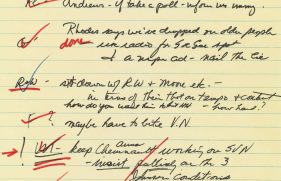 Andrews - if take a poll - inform us many
Rhodes says we've dropped on older people
done run radio for 5 or 6 wk spot
& a nwpr ad - nail the lie
RZ - sit down w/ RW + Moore etc. -
in terms of their thot on tempo & content
how do you want him this wk - how hard?
? maybe have to bite V.N.
! - keep Chennault working on SVN
insist publicly on the 3
Johnson conditions